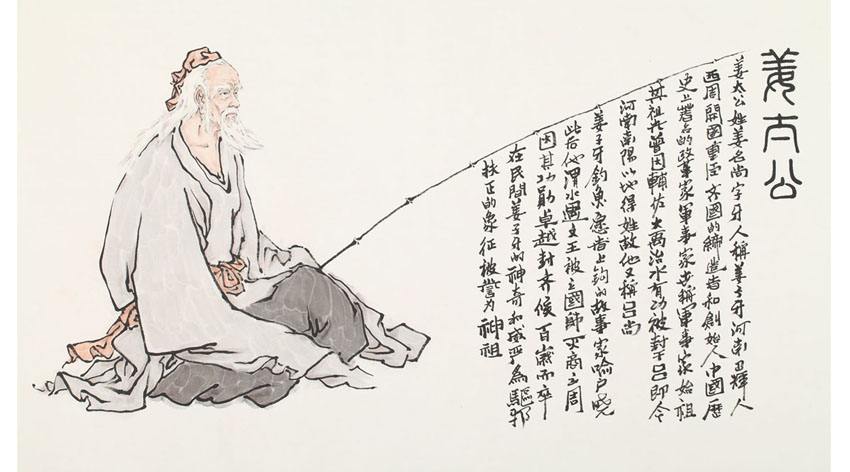 姜太公
姜太公姓姜名尚字牙人称姜子牙河南卫輝人
西周開國重臣齐國的締造者和創始人中國歷
史上著名的政事家軍事家世稱軍事家始祖
其祖先曾因輔佐大禹治水有功被封于吕即今
河南南陽以地得姓故他又稱吕尚
姜子牙釣魚愿者上鈎的故事家喻户晓
此后他渭水遇文王被立國師灭商立周
因其功勛卓越封齐侯百歲而卒
在民間姜子牙的神奇和威严為驅邪
扶正的象征被誉为神祖